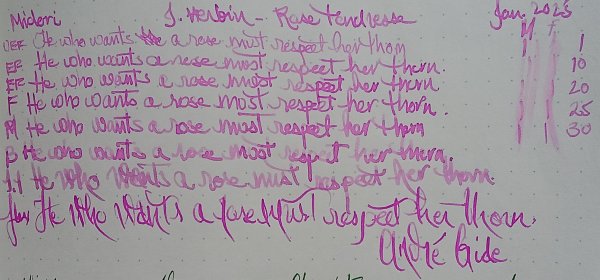 Midori J. Herbin - Rose Tendresse Jan. 2025
M F
UEF He who wants a rose must respect her thorn 1
EF He who wants a rose must respect her thorn. 10
EF He who wants a rose must respect her thorn. 20
F He who wants a rose must respect her thorn. 25
M He who wants a rose must respect her thorn 30
B He who wants a rose must respect her thorn.
1.1 He who wants a rose must respect her thorn.
He who wants a rose must respect her thorn.
André Gide